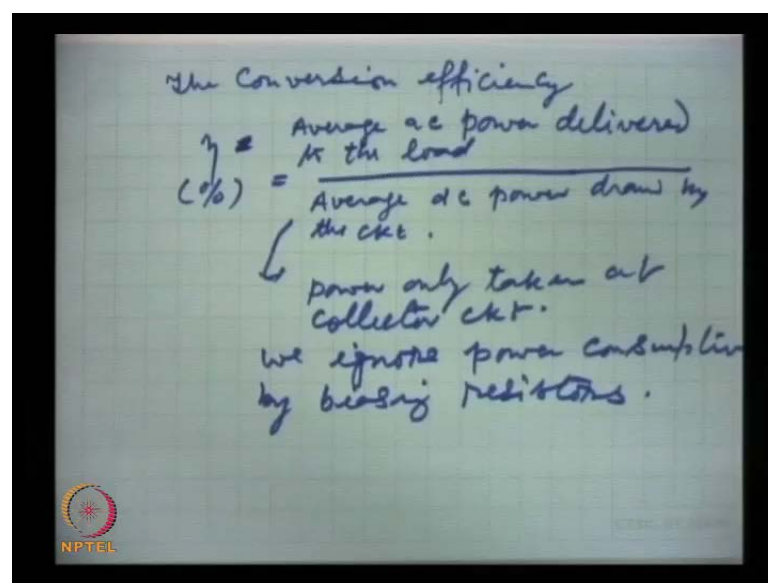 The Conversion efficiency
η = Average ac power delivered
to the load
(%) =
Average dc power drawn by
the ckt.
power only taken at
collector ckt.
we ignore power consumption
by beasing resistors.
NPTEL